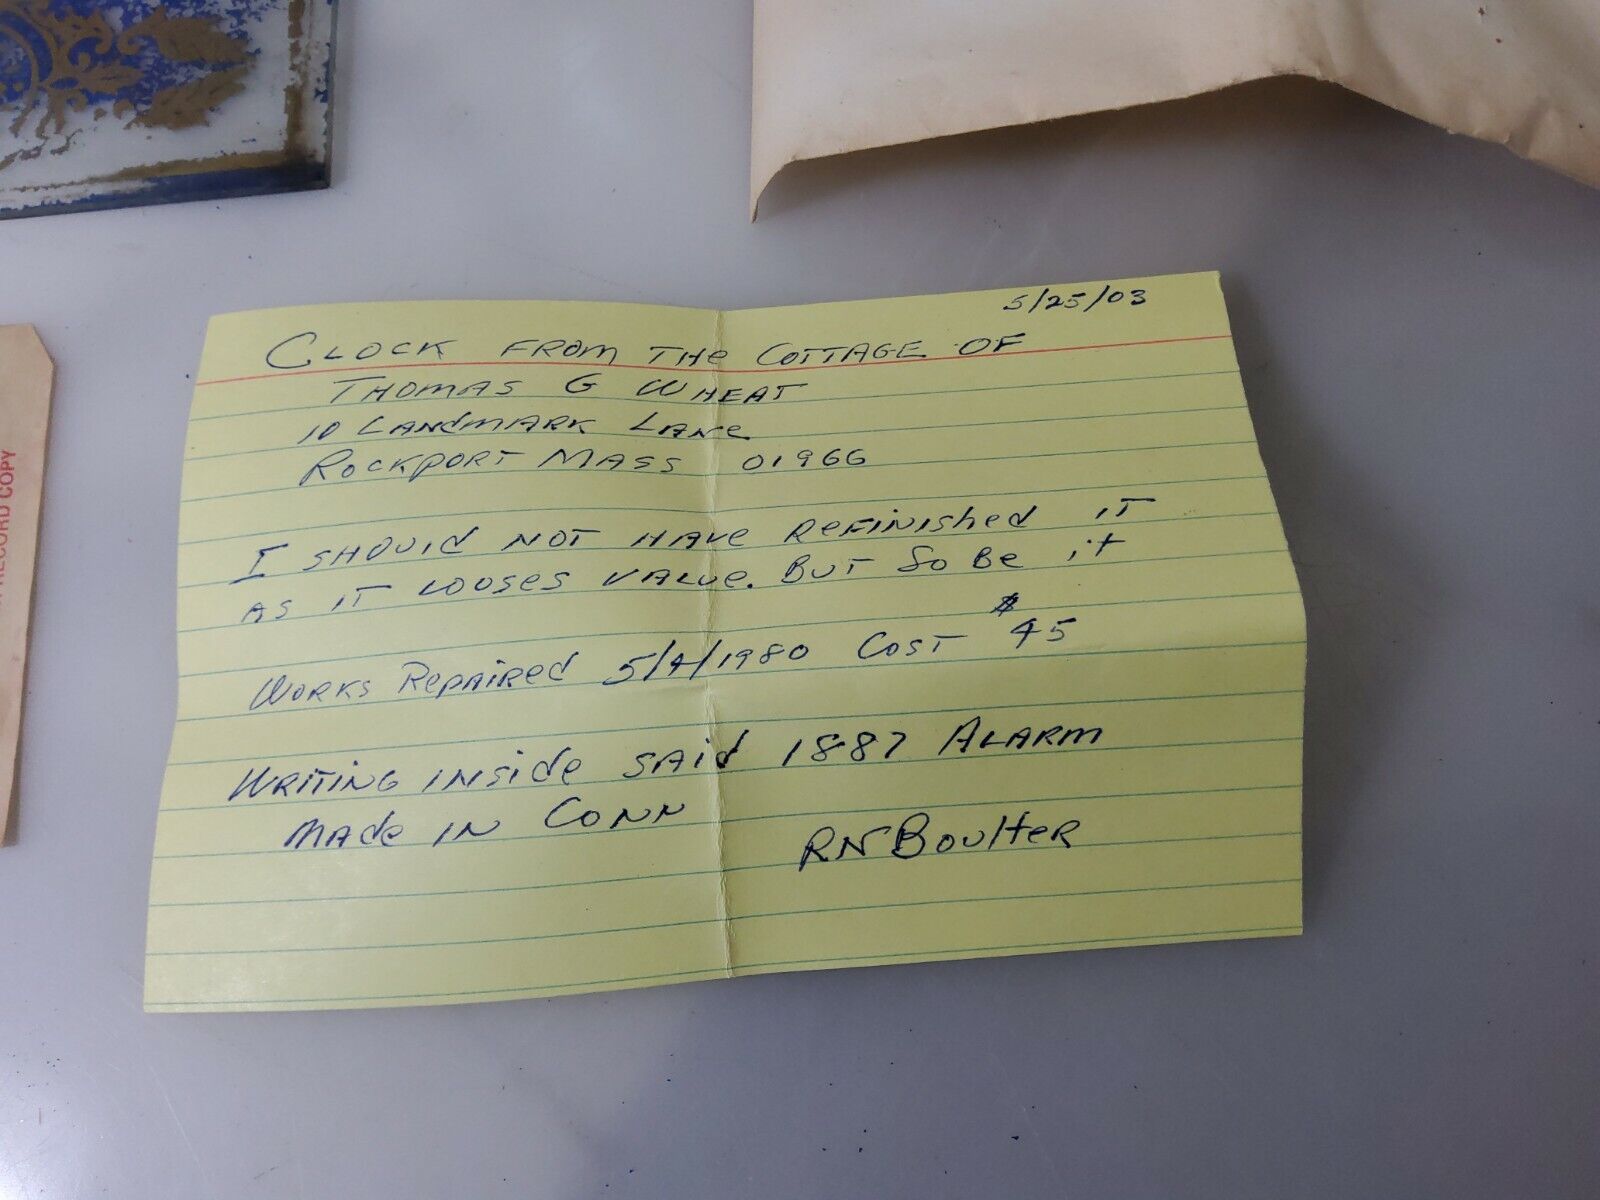 5/25/03
CLOCK FROM THE COTTAGE OF
THOMAS G WHEAT
10 LANDMARK LANE
ROCKPORT MASS 01966
I SHOULD NOT HAVE REFINISHED IT
AS IT LOOSES VALUE. BUT SO BE it
WORKS REPAIRED 5/4/1980 COST $45
WRITING INSIDE SAID 1887 ALARM
MADE IN CONN
RN BOULTER
RECORD COPY